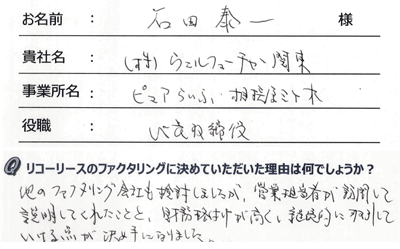 お名前 : 石田泰一 様
貴社名 : (株)ウェルフューチャー関東
事業所名 : ピュアらいふ・相模
役職 : 代表取締役
Q リコーリースのファクタリングに決めていただいた理由は何でしょうか?
他のファクタリング会社も検討しましたが、営業担当者が訪問して
説明してくれたことと、財務格付けが高く、継続的に取引して
いける点が決め手になりました。